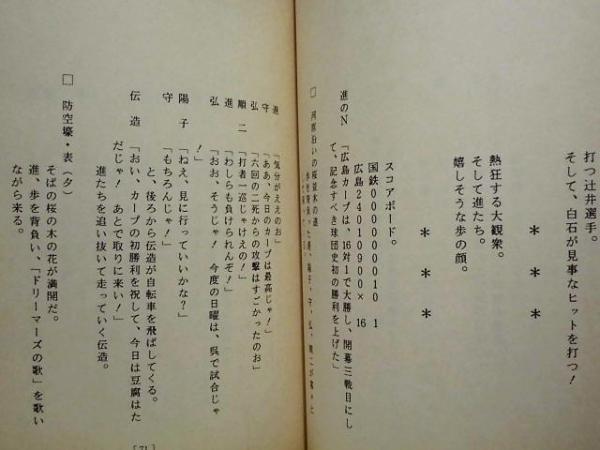 打つ辻井選手。
そして、白石が見事なヒットを打つ！
＊　＊　＊
熱狂する大観衆。
そして進たち。
嬉しそうな歩の顔。
＊　＊　＊
スコアボード。
国鉄000000010 1
広島24010900× 16
進のN「広島カープは、16対1で大勝し、開幕三戦目にし
て、記念すべき球団史初の勝利を上げた」
□ 河原沿いの桜並木の道
進「気分がええのお」
守「ああ、今日のカープは最高じゃ！」
弘「六回の二死からの攻撃はすごかったのお」
順二「打者一巡じゃけえの！」
進「わしらも負けられんぞ！」
弘「おお、そうじゃ！　今度の日曜は、呉で試合じゃ
！」
陽子「ねえ、見に行っていいかな？」
守「もちろんじゃ！」
と、後ろから伝造が自転車を飛ばしてくる。
伝造「おい、カープの初勝利を祝して、今日は豆腐はた
だじゃ！　あとで取りに来い！」
進たちを追い抜いて走っていく伝造。
□ 防空壕・表（夕）
そばの桜の木の花が満開だ。
進、歩を背負い、「ドリーマーズの歌」を歌い
ながら来る。
［71］